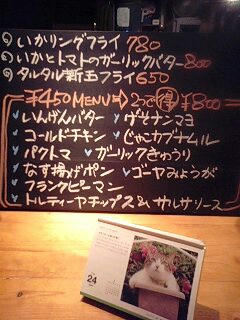 いかリングフライ 780
いかとトマトのガーリックバター 800
タルタル新玉フライ 650
¥450 MENU⇨ 2つで得 ¥800
いんげんバター
コールドチキン じゃこカブナムル
パクトマ ガーリックきゅうり
なす揚げポン ゴーヤみょうが
フランクピーマン
トルティーヤチップス& サルサソース
24